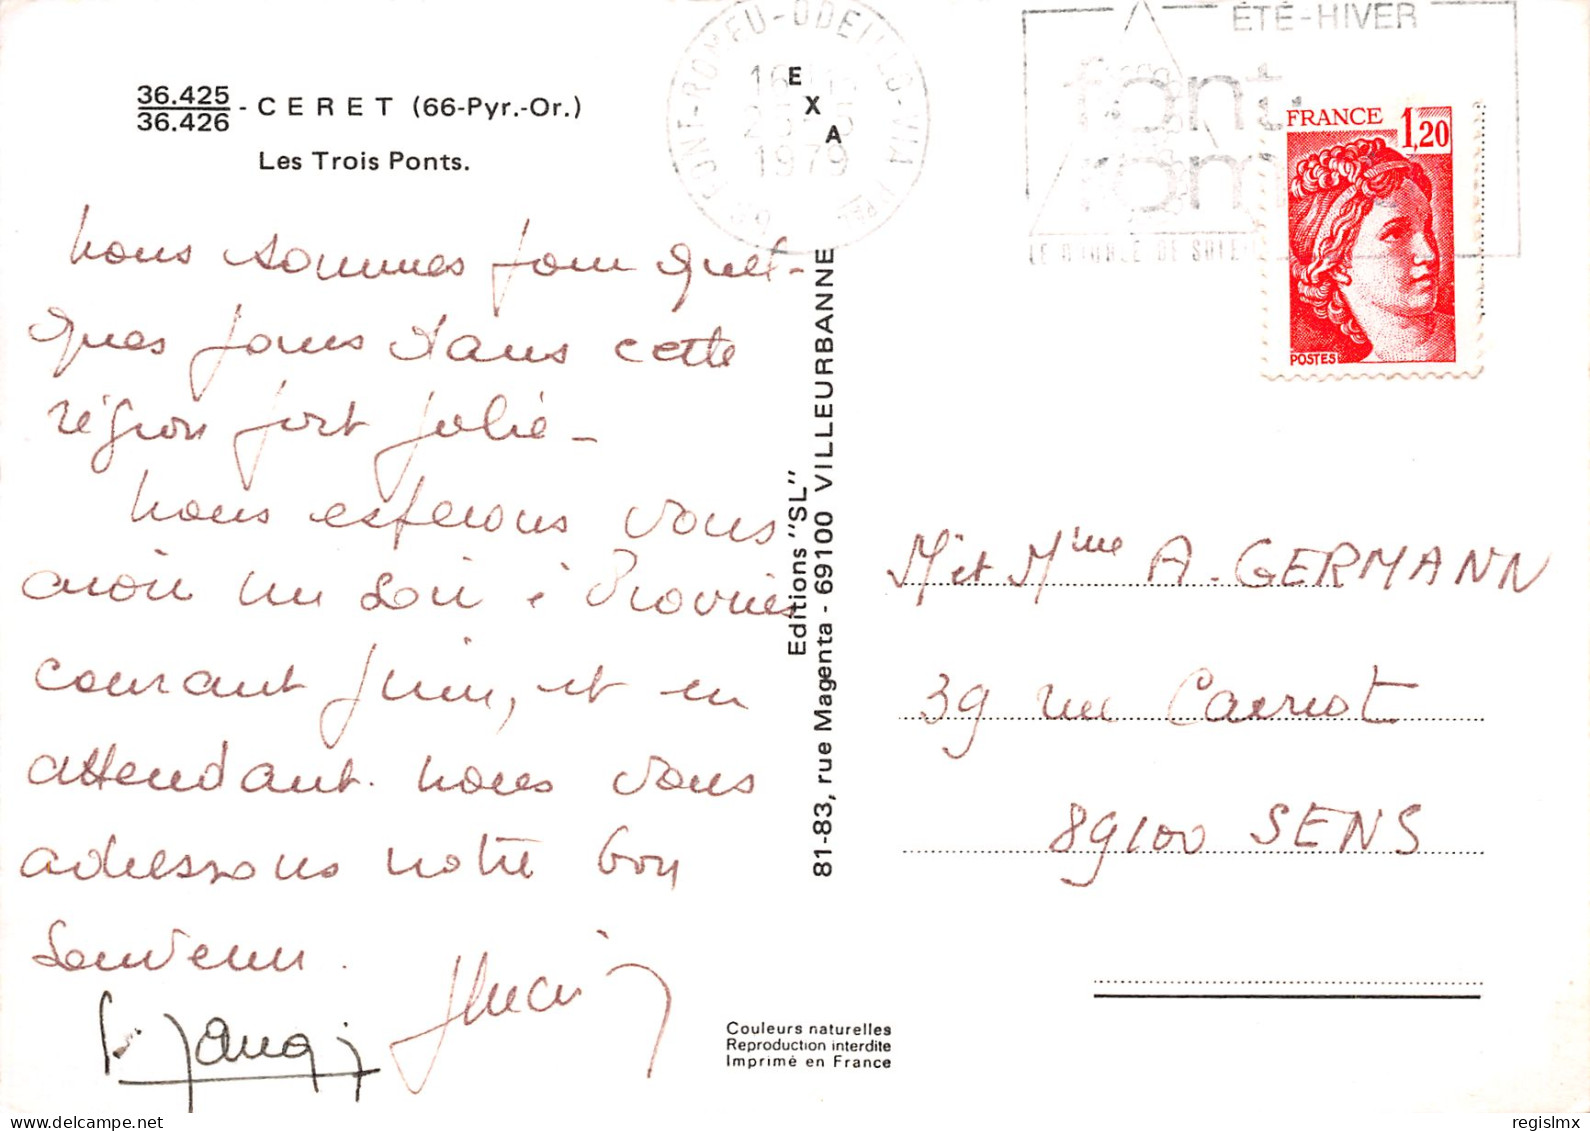 36.425
36.426
- CERET (66-Pyr.-Or.)
Les Trois Ponts.
nous sommes pour quel-
ques jours dans cette
région fort jolie -
nous esperons vous
avoir un soir à Provins
courant juin, et en
attendant nous vous
adressons notre bon
souvenir.
E
X
A
Editions "SL"
81-83, rue Magenta - 69100 VILLEURBANNE
FONT-ROMEU-ODEILLO-VIA
1979
66
ÉTÉ-HIVER
font
rom
LE DE
FRANCE 1,20
POSTES
Mr et Mme A. GERMANN
39 rue Carnot
89100 SENS
Couleurs naturelles
Reproduction interdite
Imprimé en France
regislmx